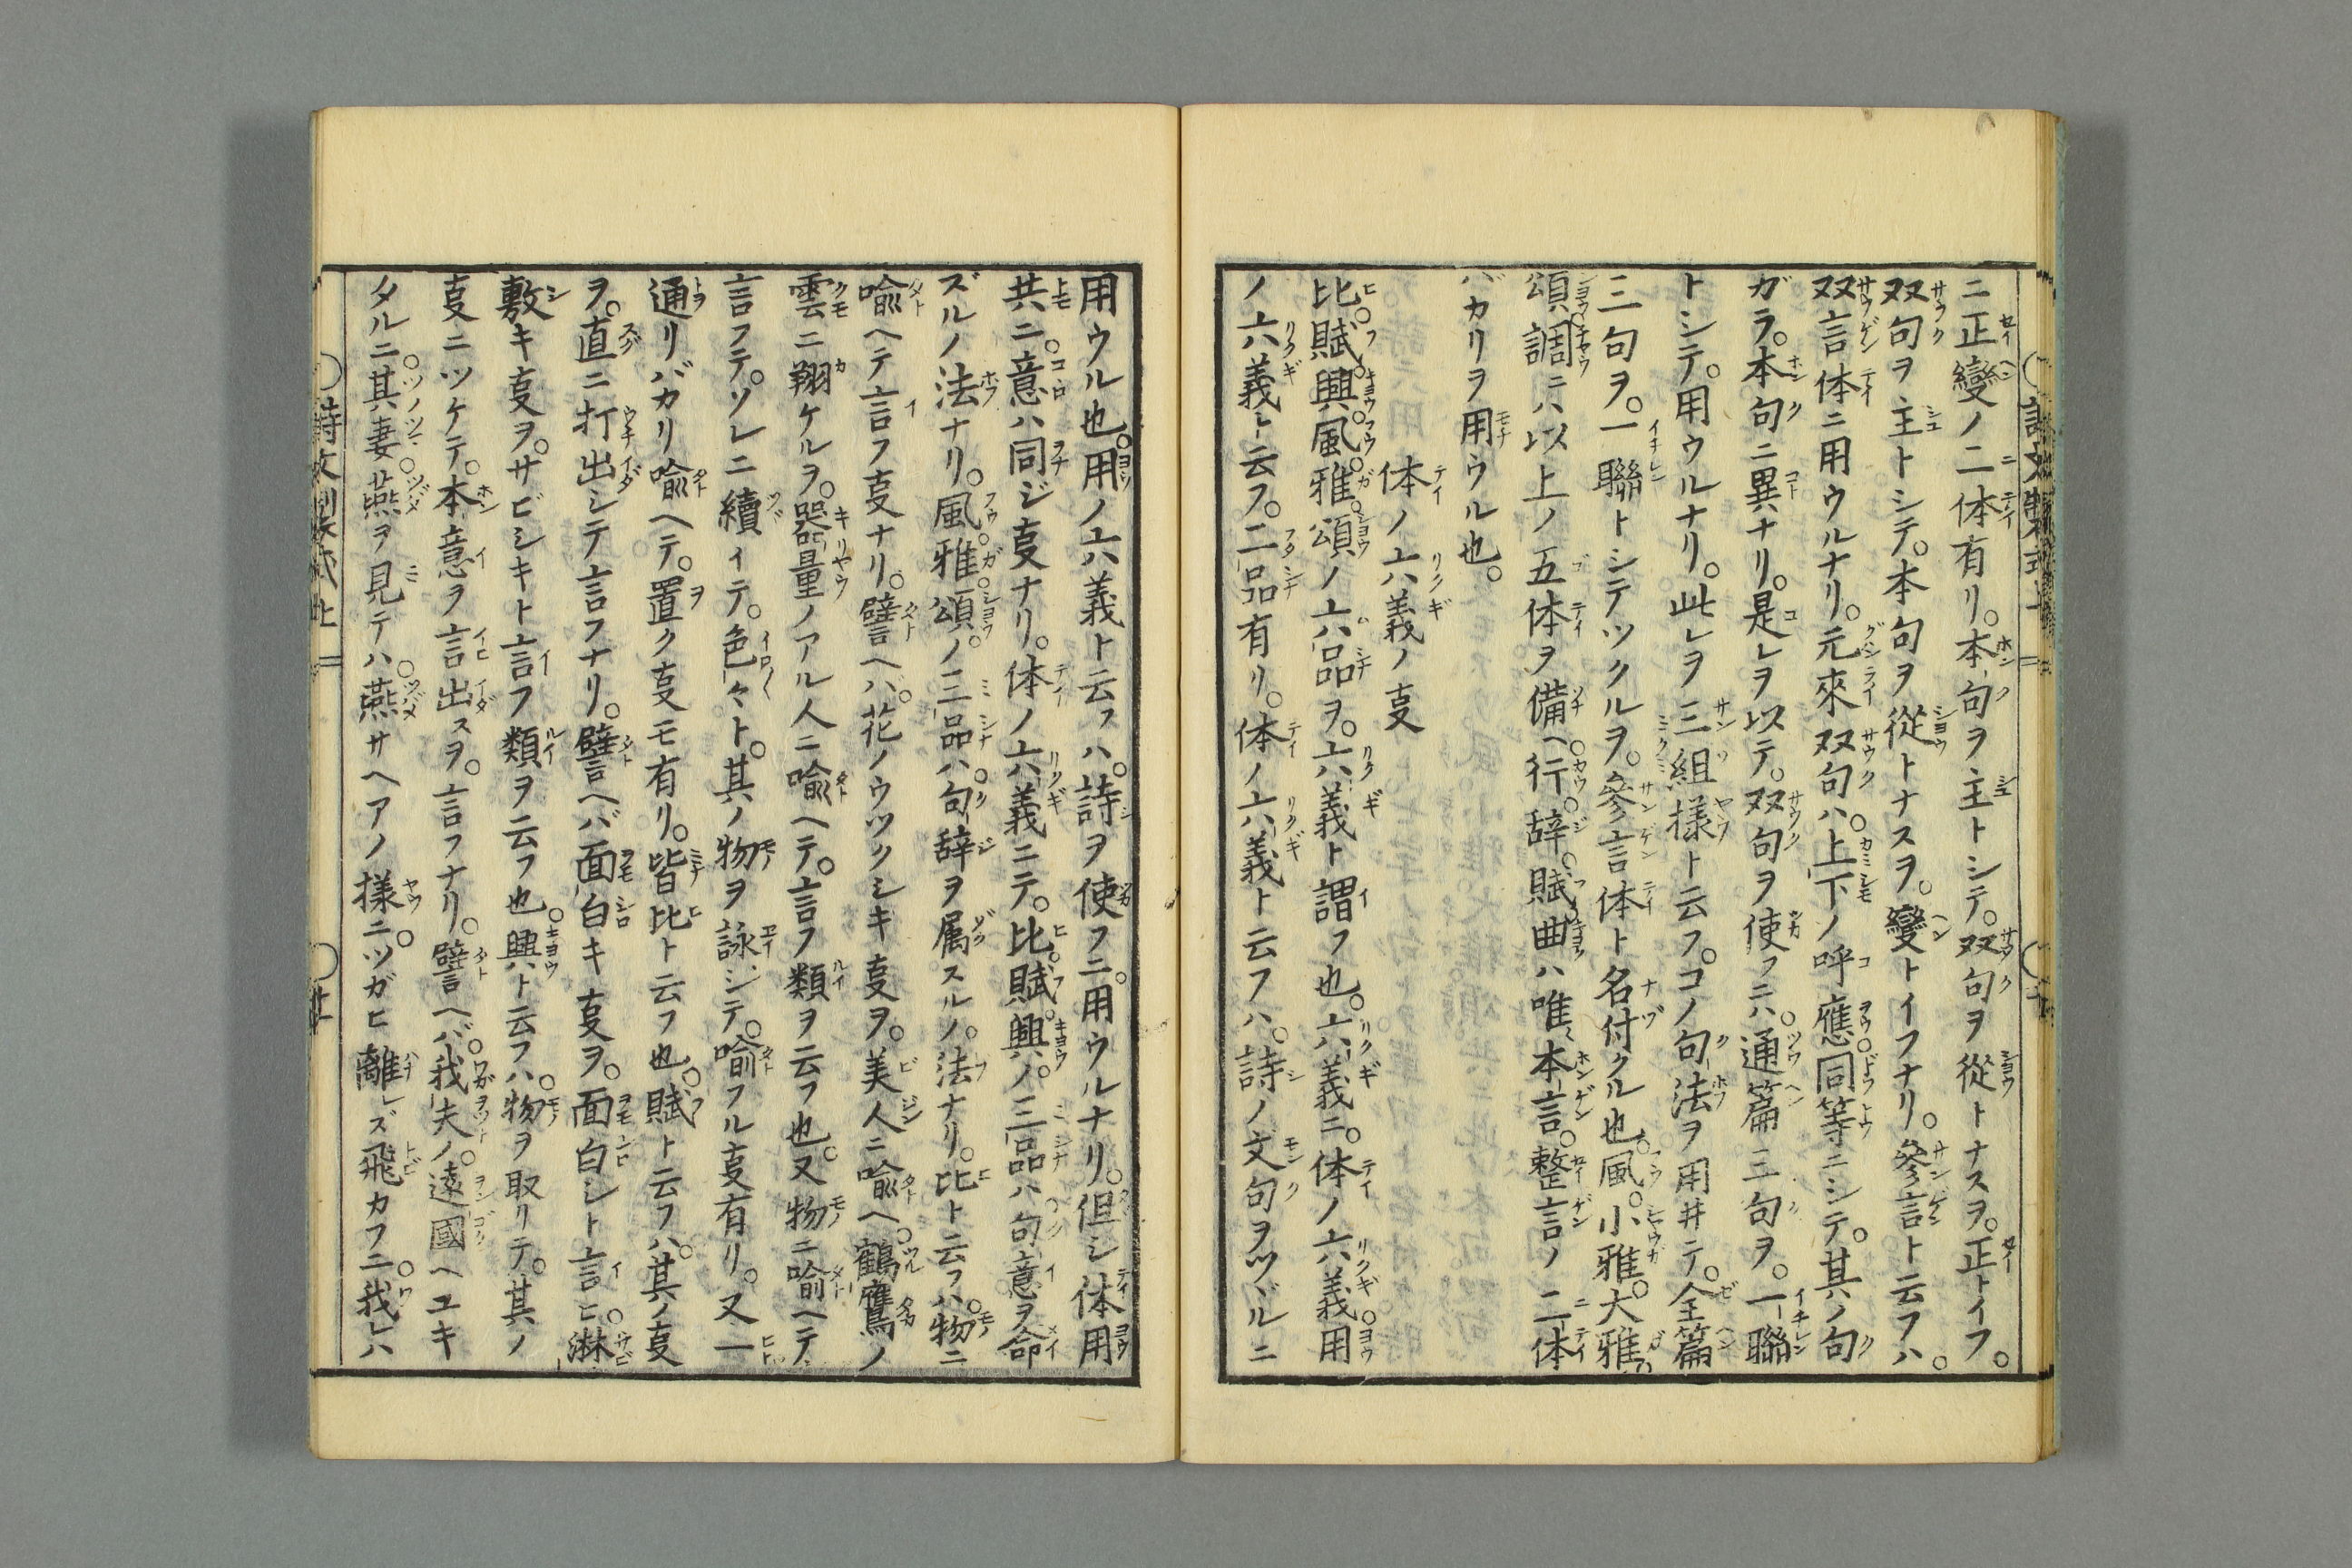 ニ正變ノ二体有リ。本句ヲ主トシテ。双句ヲ從トナスヲ。正トイフ。
双句ヲ主トシテ。本句ヲ從トナスヲ。變トイフナリ。參言ト云フハ。
双言体ニ用ウルナリ。元來双句ハ。上下ノ呼應。同等ニシテ。其ノ句
ガラ。本句ニ異ナリ。是レヲ以テ。双句ヲ使フニハ。通篇三句ヲ。一聯
トシテ。用ウルナリ。此レヲ三組樣ト云フ。コノ句法ヲ用井テ。全篇
三句ヲ。一聯トシテツクルヲ。參言体ト名付クル也。風。小雅。大雅。
頌。調ニハ以上ノ五体ヲ備ヘ。行。辞。賦。曲ハ唯本言。整言ノ二体
バカリヲ用ウル也。
体ノ六義ノ叓
比。賦。興。風。雅。頌ノ六品ヲ。六義ト謂フ也。六義ニ。体ノ六義。用
ノ六義ト云フ。二品有リ。体ノ六義ト云フハ。詩ノ文句ヲツヾルニ
用ウル也。用ノ六義ト云フハ。詩ヲ使フニ。用ウルナリ。但シ体用
共ニ。意ハ同ジ叓ナリ。体ノ六義ニテ。比。賦。興ノ。三品ハ句意ヲ命
ズルノ法ナリ。風。雅。頌ノ。三品ハ。句辞ヲ属スルノ。法ナリ。比ト云フハ。物ニ
喩ヘテ言フ叓ナリ。譬ヘバ。花ノウツクシキ叓ヲ。美人ニ喩ヘ。鶴鷹ノ
雲ニ翔ケルヲ。器量ノアル人ニ喩ヘテ。言フ類ヲ云フ也。又物ニ喩ヘテ
言フテ。ソレニ續イテ。色々ト。其ノ物ヲ詠シテ。喩フル叓有リ。又一
通リバカリ喩ヘテ。置ク叓モ有リ。皆比ト云フ也。賦ト云フハ。其ノ叓
ヲ。直ニ打出シテ言フナリ。譬ヘバ面白キ叓ヲ。面白シト言ヒ。淋
敷キ叓ヲ。サビシキト言フ類ヲ云フ也。興ト云フハ。物ヲ取リテ。其ノ
叓ニツケテ。本意ヲ言出スヲ。言フナリ。譬ヘバ。我夫ノ。遠國ヘユキ
タルニ。其妻。燕ヲ見テハ。燕サヘアノ樣ニ。ツガヒ離レズ飛カフニ。我レハ
詩文製式 上 二